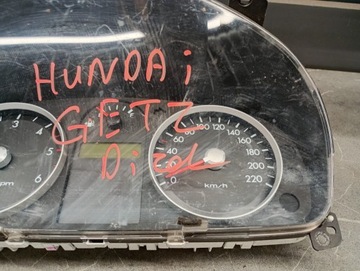 HUNDAi
GETZ
Dizel
4 5 6
6
pm
0 20 80 100 120 140 160 180 200 220
km/h